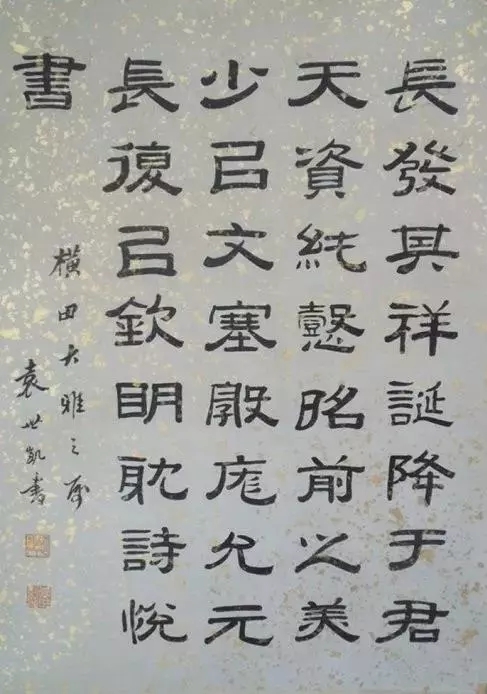 長發其祥誕降于君
天資純懿昭前之美
少㠯文塞敦庬允元
長復㠯欽眀耽詩悅
書
橫田大雅之属
袁世凱書